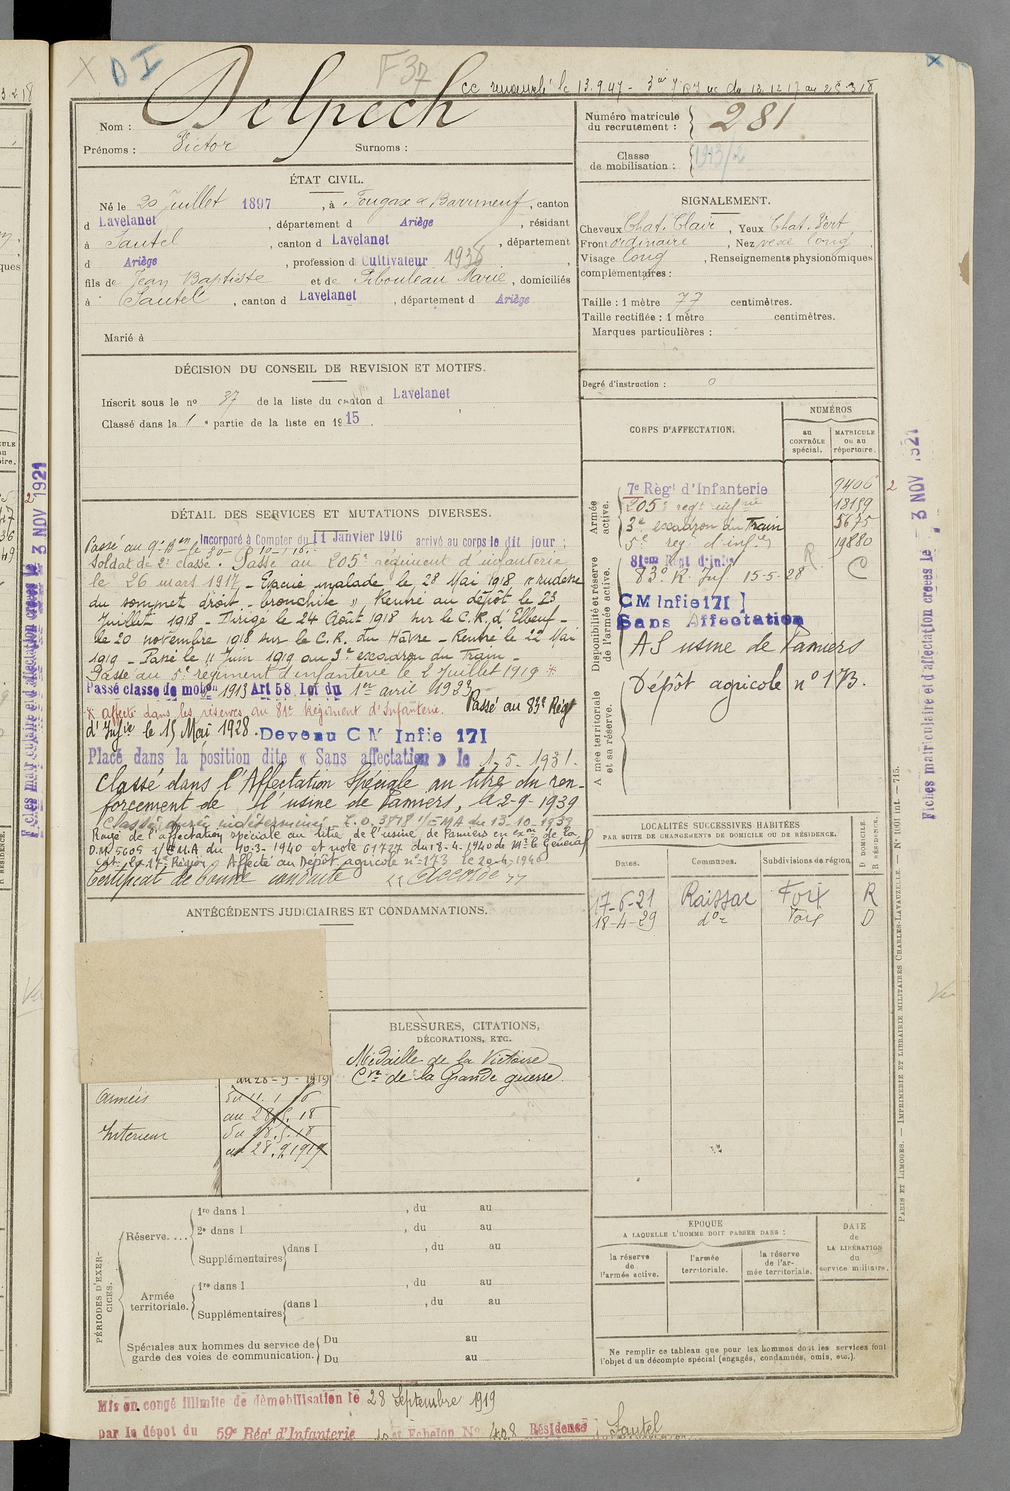 X DI F37
cc
Delpech
Nom :
Prénoms : Victor Surnoms :
Numéro matricule
du recrutement : 281
Classe
de mobilisation : 1913/2
ÉTAT CIVIL.
Né le 20 juillet 1897, à Fougax & Barrineuf, canton
d Lavelanet, département d Ariège, résidant
à Sautel, canton d Lavelanet, département
d Ariège, profession d Cultivateur 1936,
fils de Jean Baptiste et de Pibouleau Marie, domiciliés
à Sautel, canton d Lavelanet, département d Ariège
Marié à
SIGNALEMENT.
Cheveux Chat. Clair, Yeux Chat. Vert,
Front ordinaire, Nez vexe long,
Visage long, Renseignements physionomiques
complémentaires :
Taille : 1 mètre 77 centimètres.
Taille rectifiée : 1 mètre centimètres.
Marques particulières :
Degré d'instruction : 0
DÉCISION DU CONSEIL DE REVISION ET MOTIFS.
Inscrit sous le no 37 de la liste du canton d Lavelanet
Classé dans la 1 e partie de la liste en 1915.
DÉTAIL DES SERVICES ET MUTATIONS DIVERSES.
Incorporé à Compter du 11 Janvier 1916 arrivé au corps le dit jour ;
Passé au 9e
Soldat de 2e classe. Passé au 205e régiment d'infanterie
le 26 mars 1917 _ Evacué malade le 28 Mai 1918 « rudesse
du sommet droit _ bronchite » Rentré au dépôt le 23
Juillet 1918 - Dirigé le 24 Août 1918 sur le C.R. d'Elbeuf -
le 20 novembre 1918 sur le C.R. du Hâvre - Rentré le 22 Mai
1919 - Passé le 11 Juin 1919 au 3e escadron du Train -
Passé au 5e régiment d'infanterie le 2 Juillet 1919 *
Passé classe de mobon 1913 Art 58 Loi du 1er avril 1923
* Affecté dans les réserves au 81e Régiment d'Infanterie. Passé au 83e Régt
d'Infie le 15 Mai 1928. Devenu C M Infie 171
Placé dans la position dite « Sans affectation » le 1-5-1931.
Classé dans l'Affectation Spéciale au titre du ren-
forcement de l'usine de Pamiers, le 2-9-1939
Classé durée indéterminée - E.O. 3878 1/EMA du 13-10-1939
Rayé de l'affectation spéciale au titre de l'usine de Pamiers en exon de la
D.M. 5605 1/EMA du 10-3-1940 et note 61727 du 18-4-1940 de Mr le Général
Cdt la 17e Région Affecté au Dépôt agricole no 173 le 20-4-1940
Certificat de bonne conduite « Accordé »
CORPS D'AFFECTATION.
NUMÉROS
au
CONTRÔLE
spécial.
MATRICULE
ou au
répertoire.
Armée
active.
7e Régt d'Infanterie 9406
205e regt infrie 18159
3e escadron du Train 5675
5e regt d'infie 19880
Disponibilité et réserve
de l'armée active.
81em Regt d'Infie R
83e R. Inf. 15-5-28 C
CM Infie 171
Sans Affectation
AS usine de Pamiers
Armée territoriale
et sa réserve.
Dépôt agricole no 173.
LOCALITÉS SUCCESSIVES HABITÉES
PAR SUITE DE CHANGEMENTS DE DOMICILE OU DE RÉSIDENCE.
Dates. Communes. Subdivisions de région. D DOMICILE. R RÉSIDENCE.
17-6-21 Raissac Foix R
18-4-29 do Foix D
ANTÉCÉDENTS JUDICIAIRES ET CONDAMNATIONS.
BLESSURES, CITATIONS,
DÉCORATIONS, ETC.
Médaille de la Victoire
Cve de la Grande guerre.
au 28-9-1919
Armées du 11.1.16
au 28.5.18
Interieur du 28.5.18
au 28.9.1919
PÉRIODES D'EXER-
CICES.
Réserve.... 1re dans l, du au
2e dans l, du au
Supplémentaires dans l, du au
Armée
territoriale. 1re dans l, du au
Supplémentaires dans l, du au
Spéciales aux hommes du service de
garde des voies de communication. Du au
Du au
EPOQUE
A LAQUELLE L'HOMME DOIT PASSER DANS :
la réserve
de
l'armée active.
l'armée
territoriale.
la réserve
de l'ar-
mée territoriale.
DATE
de
LA LIBÉRATION
du
service militaire.
Ne remplir ce tableau que pour les hommes dont les services font
l'objet d'un décompte spécial (engagés, condamnés, omis, etc.).
Mis en congé illimité de démobilisation le 28 Septembre 1919
par le dépôt du 59e Régt d'Infanterie Echelon No 428 Résidence Sautel
Fiches matriculaire et d'affectation créées le 3 NOV 1921
Fiches matriculaire et d'affectation créées le 3 NOV 1921
PARIS ET LIMOGES. — IMPRIMERIE ET LIBRAIRIE MILITAIRES CHARLES-LAVAUZELLE. — No 1001 int. — 715.